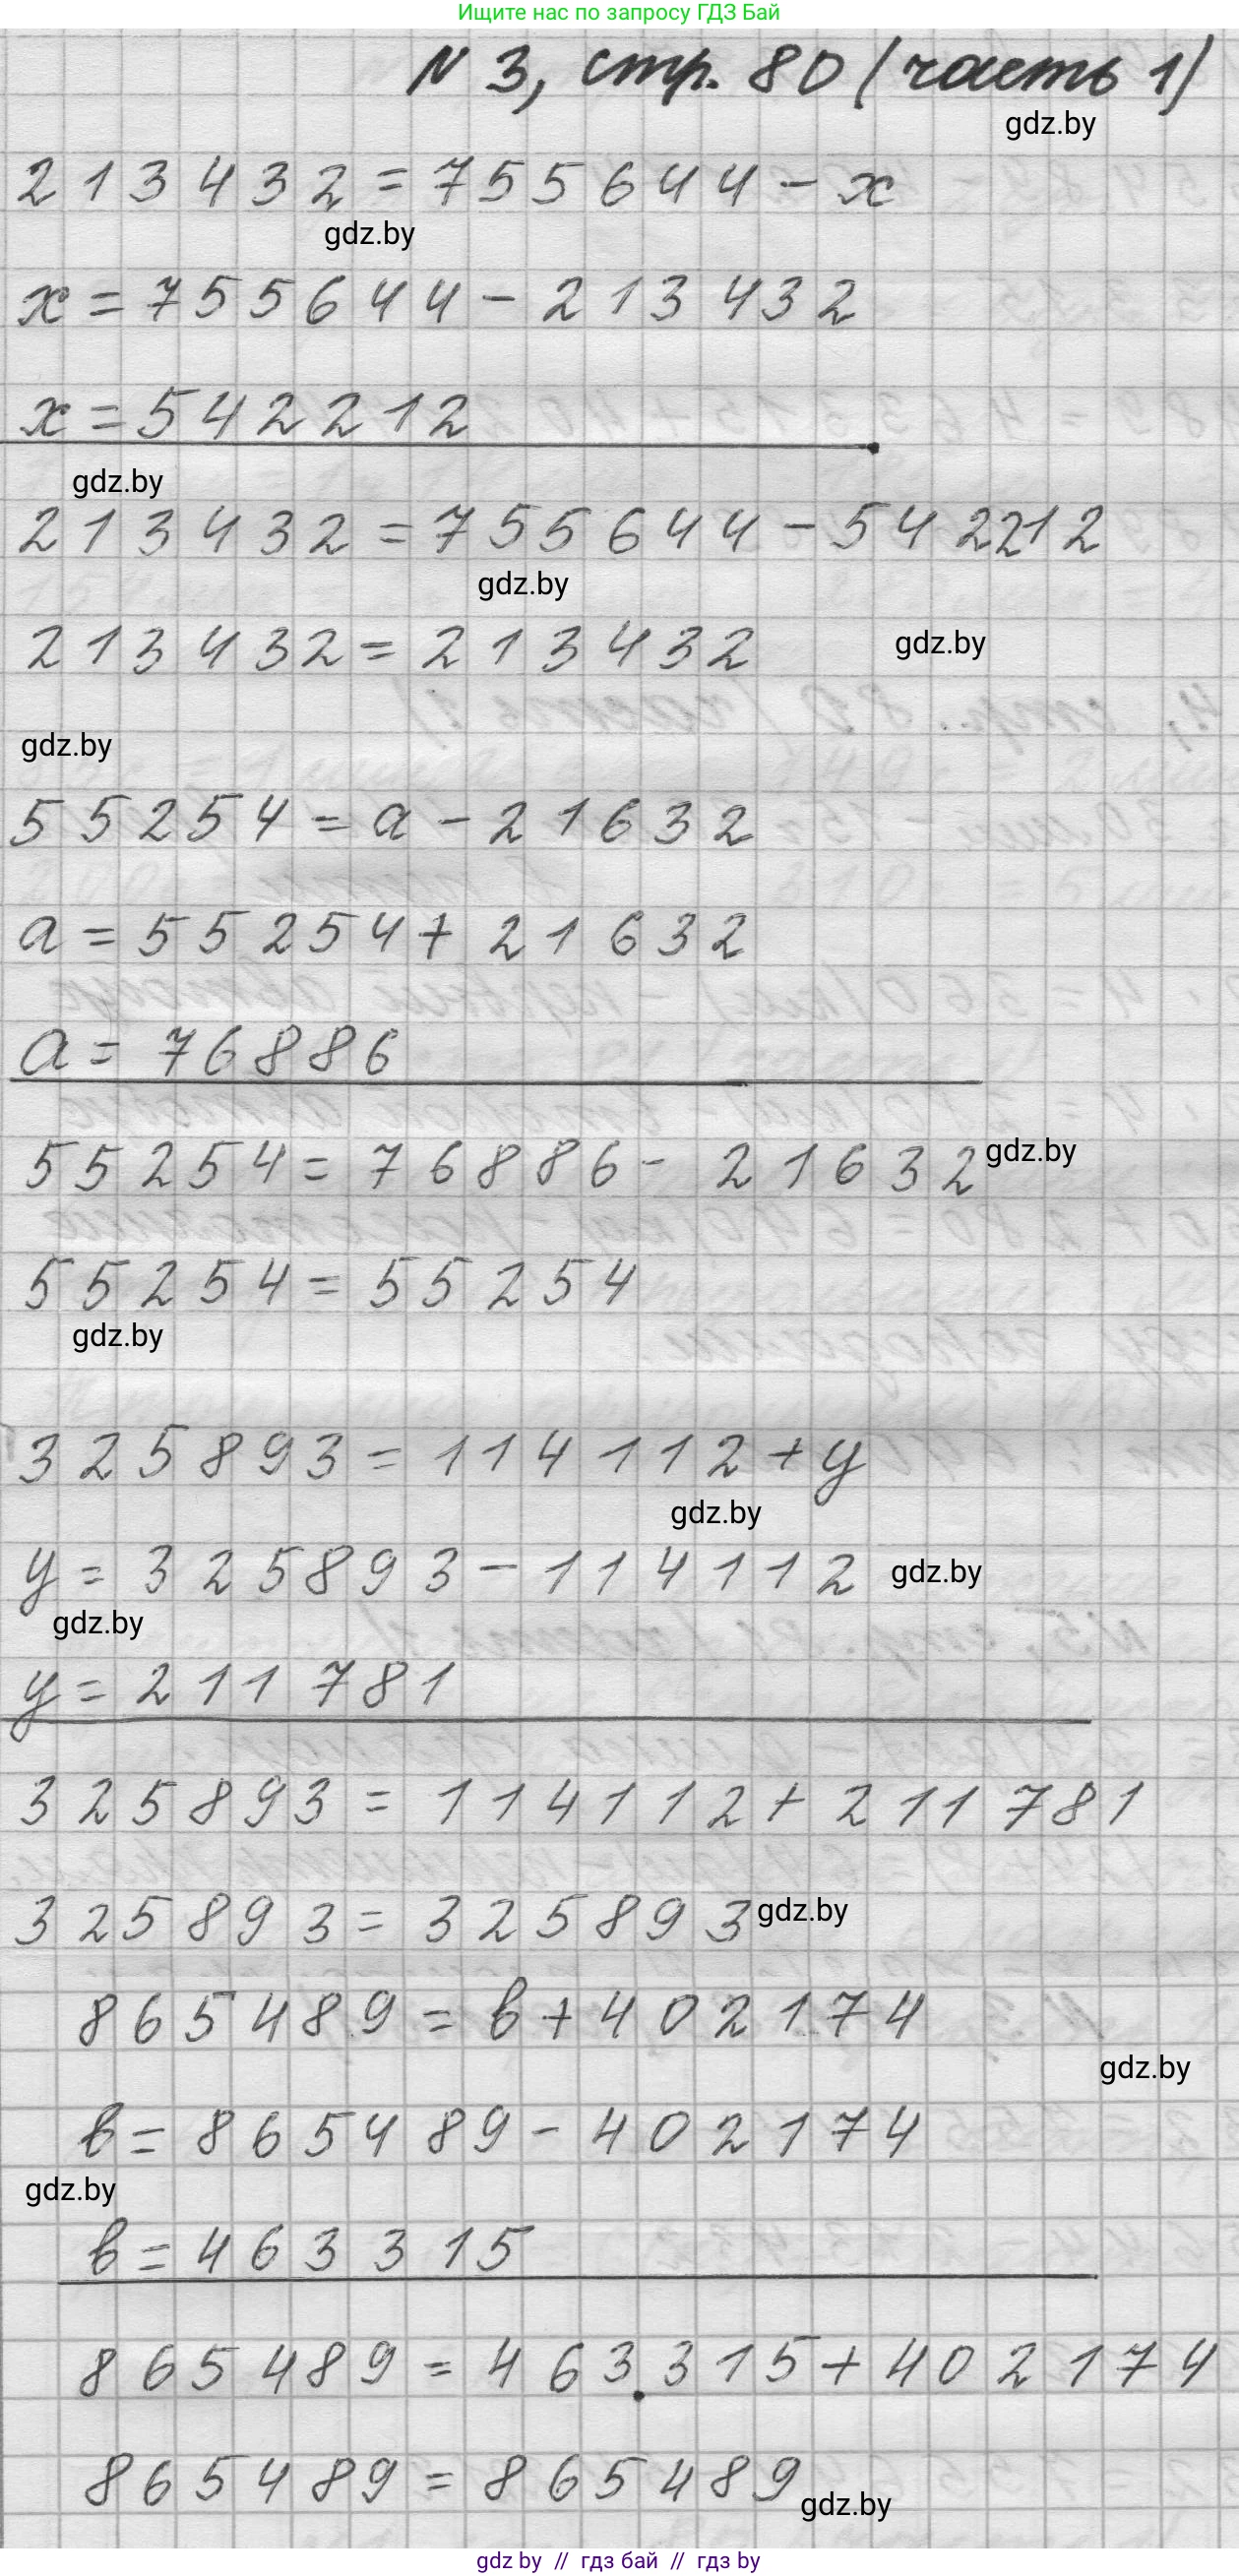 Ищите нас по запросу ГДЗ Бай
N 3, стр. 80 (часть 1)
gdz.by
213432 = 755644 - x
gdz.by
x = 755644 - 213432
x = 542212
gdz.by
213432 = 755644 - 542212
gdz.by
213432 = 213432
gdz.by
gdz.by
55254 = a - 21632
a = 55254 + 21632
a = 76886
55254 = 76886 - 21632
gdz.by
55254 = 55254
gdz.by
325893 = 114112 + y
gdz.by
y = 325893 - 114112
gdz.by
gdz.by
y = 211781
325893 = 114112 + 211781
325893 = 325893
gdz.by
865489 = в + 402174
gdz.by
в = 865489 - 402174
gdz.by
в = 463315
865489 = 463315 + 402174
865489 = 865489
gdz.by
gdz by // гдз бай // гдз by